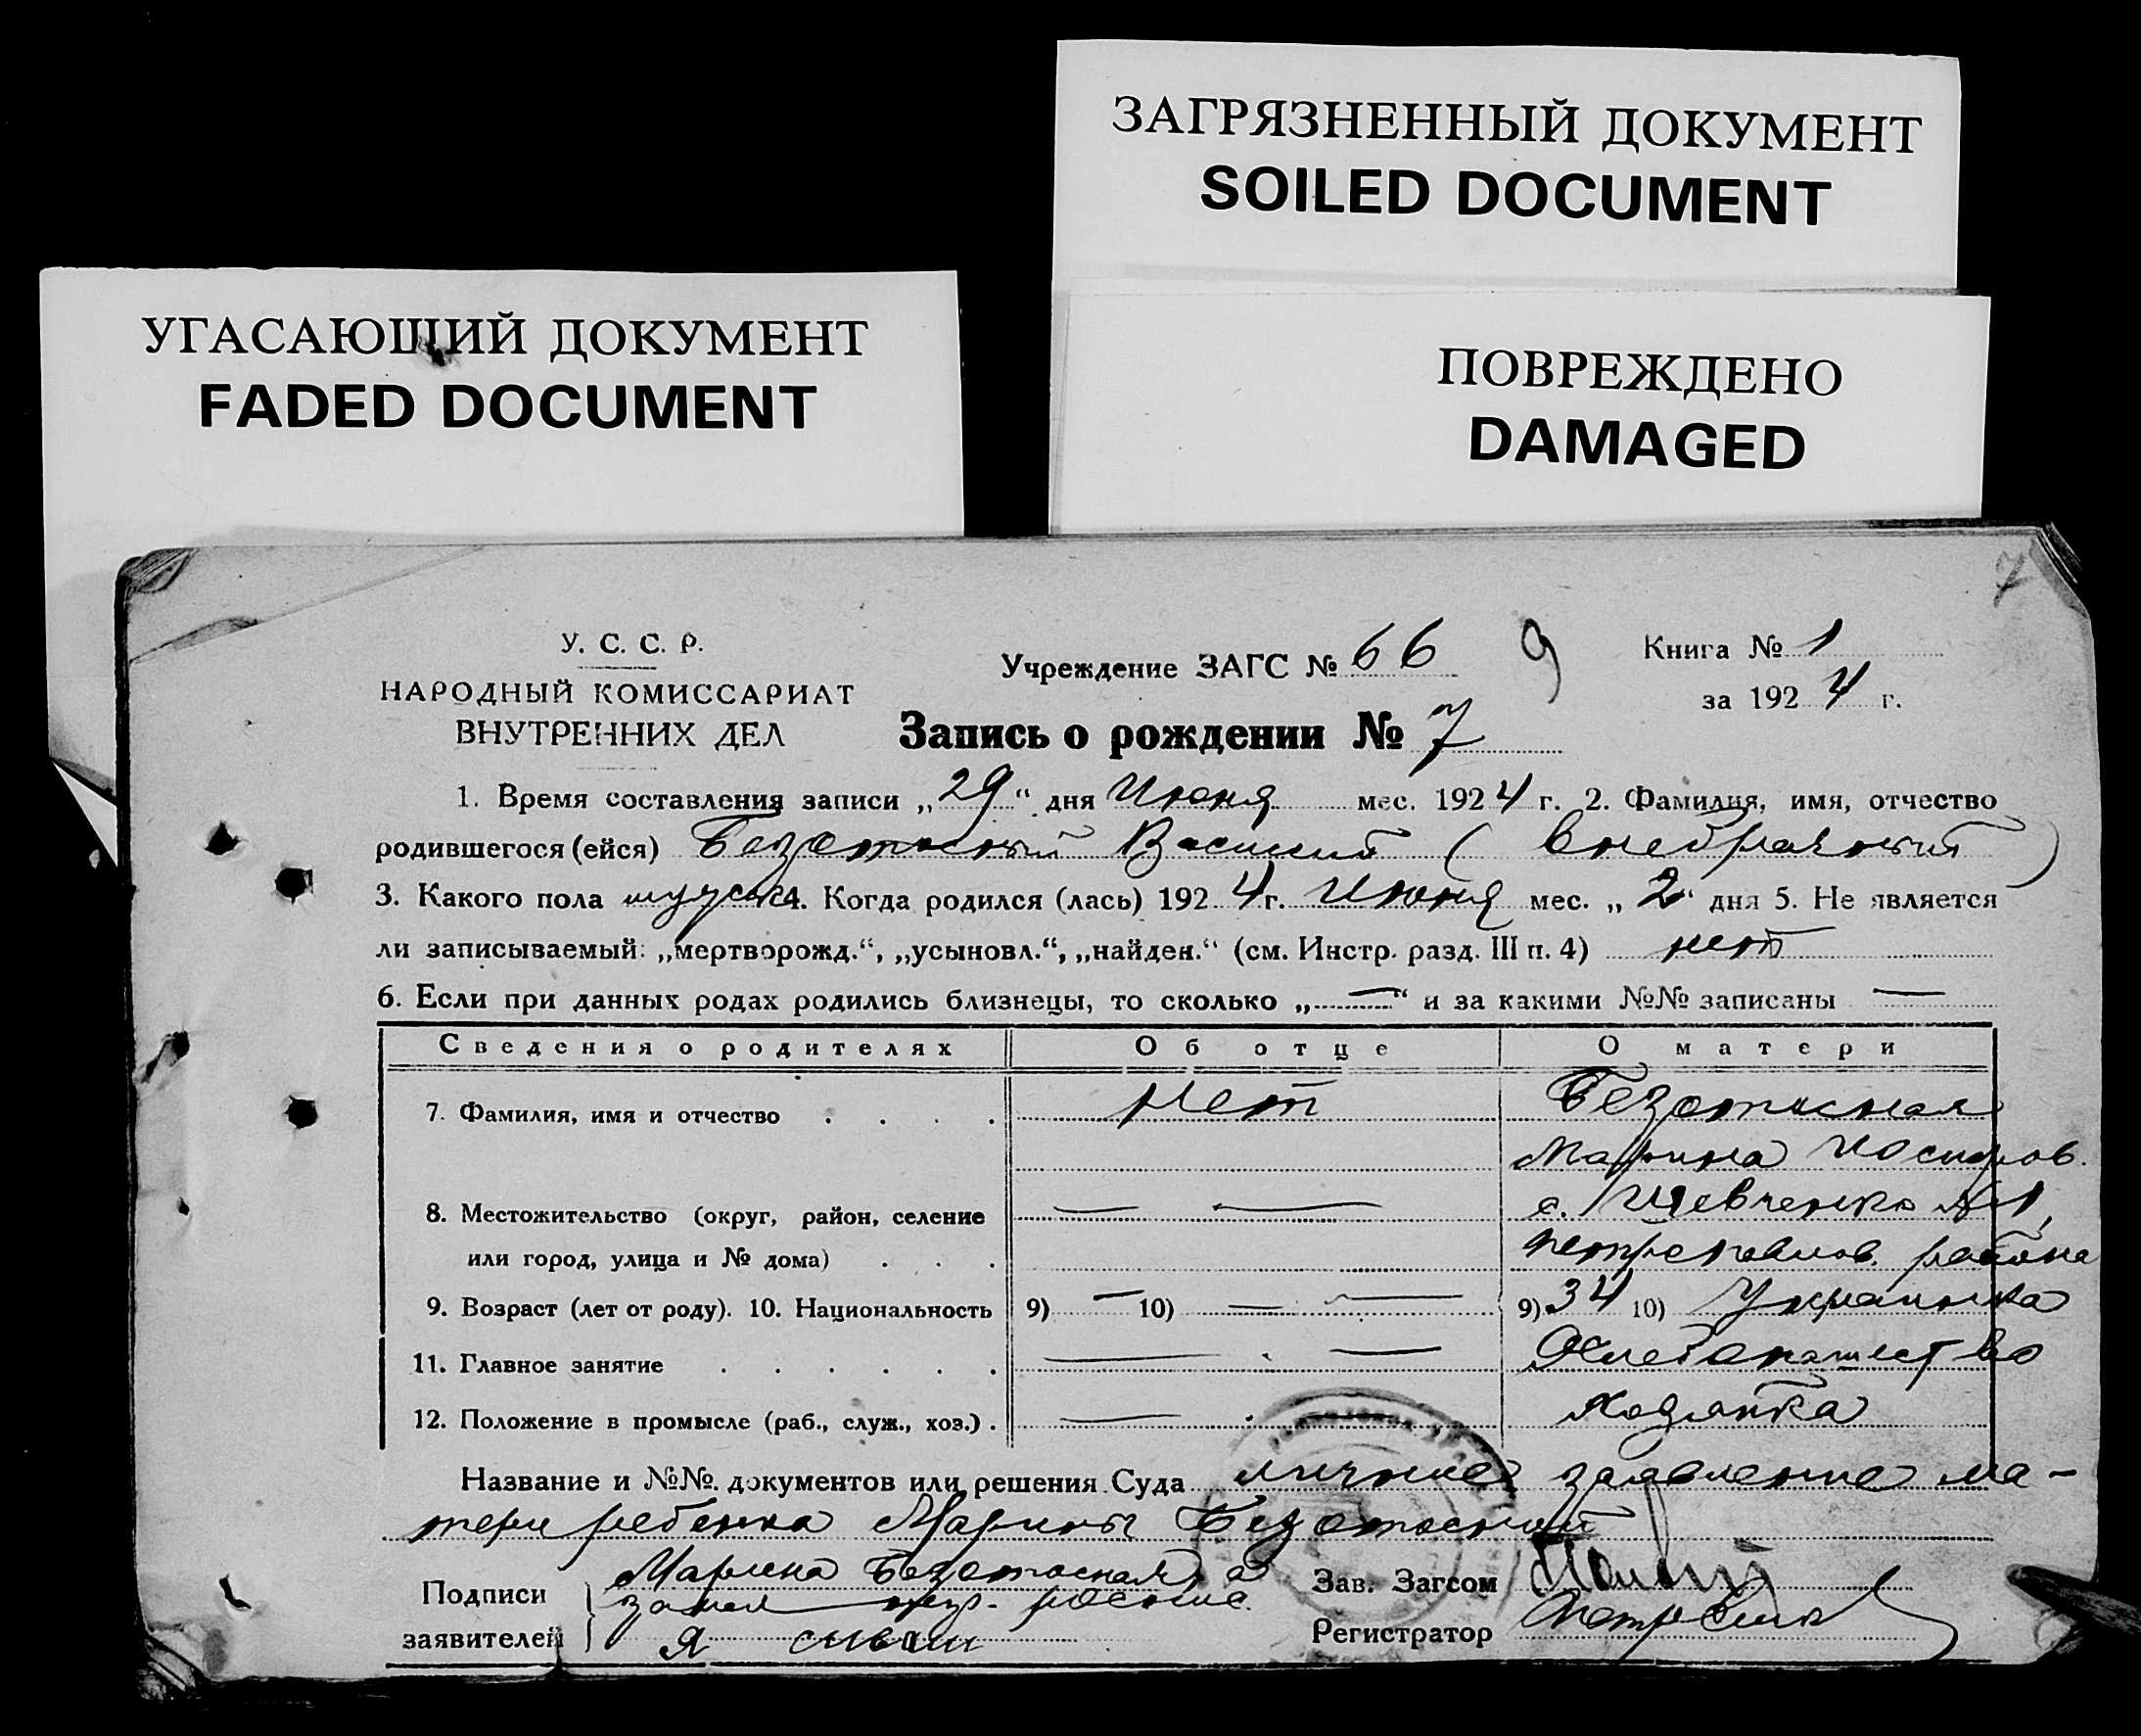 ЗАГРЯЗНЕННЫЙ ДОКУМЕНТ
SOILED DOCUMENT
УГАСАЮЩИЙ ДОКУМЕНТ
FADED DOCUMENT
ПОВРЕЖДЕНО
DAMAGED
7
У. С. С. Р.
НАРОДНЫЙ КОМИССАРИАТ
ВНУТРЕННИХ ДЕЛ
Учреждение ЗАГС № 66
9
Книга № 1
за 1924 г.
Запись о рождении № 7
1. Время составления записи „29“ дня Июня мес. 1924 г. 2. Фамилия, имя, отчество
родившегося (ейся) Безотосный Василий (внебрачный)
3. Какого пола мужск 4. Когда родился (лась) 1924 г. Июня мес. „2“ дня 5. Не является
ли записываемый: „мертворожд.“, „усыновл.“, „найден.“ (см. Инстр. разд. III п. 4) нет
6. Если при данных родах родились близнецы, то сколько „—“ и за какими №№ записаны —
Сведения о родителях Об отце О матери
7. Фамилия, имя и отчество . . . . нет Безотосная
Марина Иосифов.
8. Местожительство (округ, район, селение — — с. Шевченко №1,
или город, улица и № дома) . . . Петропавлов. района
9. Возраст (лет от роду). 10. Национальность 9) — 10) — — 9) 34 10) Украинка
11. Главное занятие . . . . . . — — Хлебопашество
12. Положение в промысле (раб., служ., хоз.) . — — Хозяйка
Название и №№. документов или решения Суда личное заявление ма-
тери ребенка Марины Безотосной
Подписи
заявителей
Марина Безотосная, а
за нея негр.
Я
Зав. Загсом
Регистратор